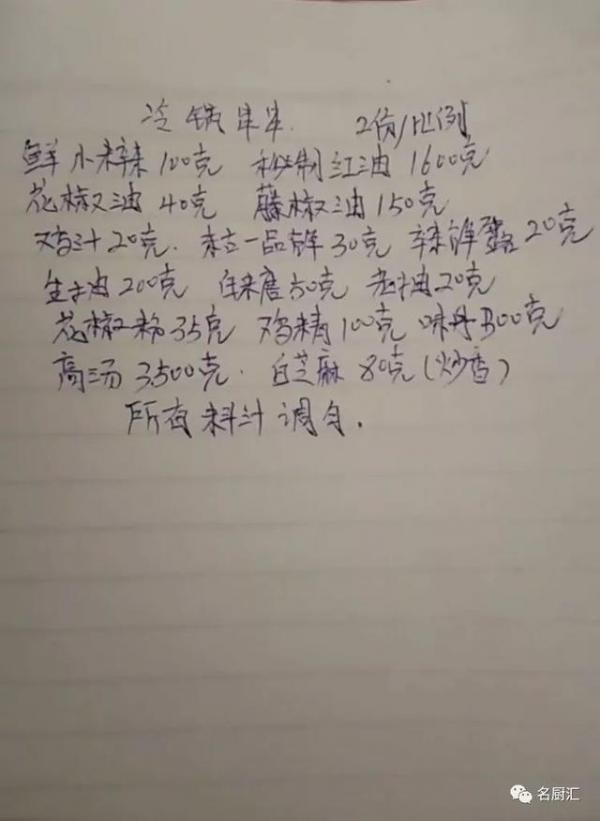 冷锅串串 2份/比例
鲜小米辣100克 秘制红油1600克
花椒油40克 藤椒油150克
鸡汁20克. 一品鲜30克 辣鲜露20克
生抽200克 50克 老抽20克
花椒粉35克 鸡精100克 味丹300克
高汤3500克. 白芝麻80克(炒香)
所有料汁调匀.
名厨汇